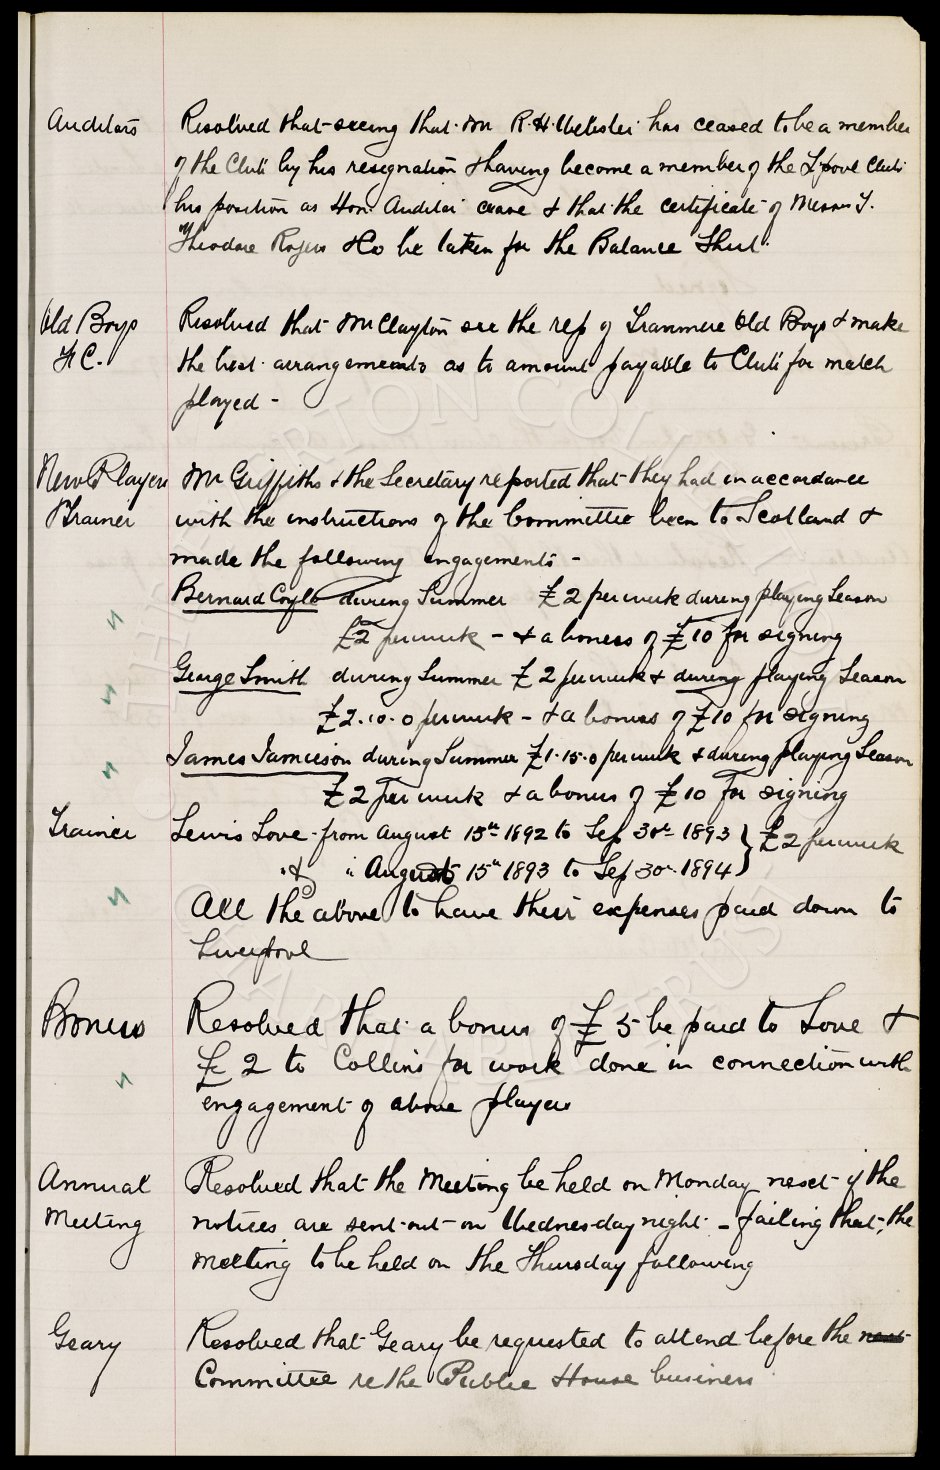 Auditors
Resolved that seeing that Mr R.H. Webster has ceased to be a member
of the Club by his resignation & having become a member of the L'pool Club
his position as Hon. Auditor cease & that the certificate of Messrs T.
Theodore Rogers & Co be taken for the Balance Sheet.
Old Boys
F.C.
Resolved that Mr Clayton see the rep of Tranmere Old Boys & make
the best arrangements as to amount payable to Club for match
played -
New Players
& Trainer
Mr Griffiths & the Secretary reported that they had in accordance
with the instructions of the Committee been to Scotland &
made the following engagements -
Bernard Coyle during Summer £2 per week during playing Season
£2 per week - & a bonus of £10 for signing
George Smith during Summer £2 per week & during playing Season
£2.10.0 per week - & a bonus of £10 for signing
James Jamieson during Summer £1.15.0 per week & during playing Season
£2 per week & a bonus of £10 for signing
Trainer
Lewis Love - from August 15th 1892 to Sep 30th 1893 } £2 per week
" & " August 15th 1893 to Sep 30th 1894 }
All the above to have their expenses paid down to
Liverpool
Bonus
Resolved that a bonus of £5 be paid to Love &
£2 to Collins for work done in connection with
engagement of above players
Annual
Meeting
Resolved that the Meeting be held on Monday next if the
notices are sent out on Wednesday night - failing that, the
meeting to be held on the Thursday following
Geary
Resolved that Geary be requested to attend before the next
Committee re the Public House business
EVERTON COLLECTION
CHARITABLE TRUST